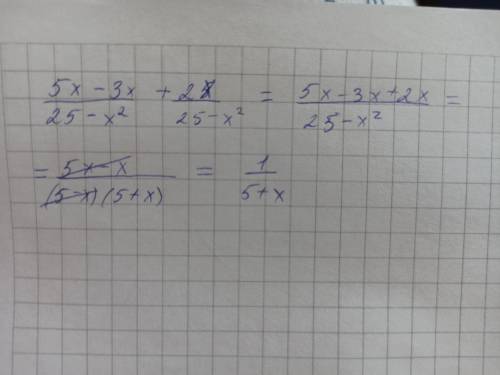 (5x - 3x)/(25 - x²) + 2x/(25 - x²) = (5x - 3x + 2x)/(25 - x²) =
= (5x - x)/((5-x)(5+x)) = 1/(5+x)